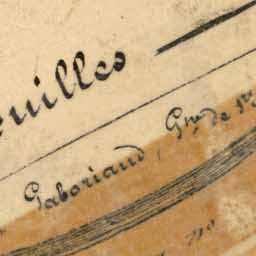 euilles
Gaboriaud, Gme de 1re